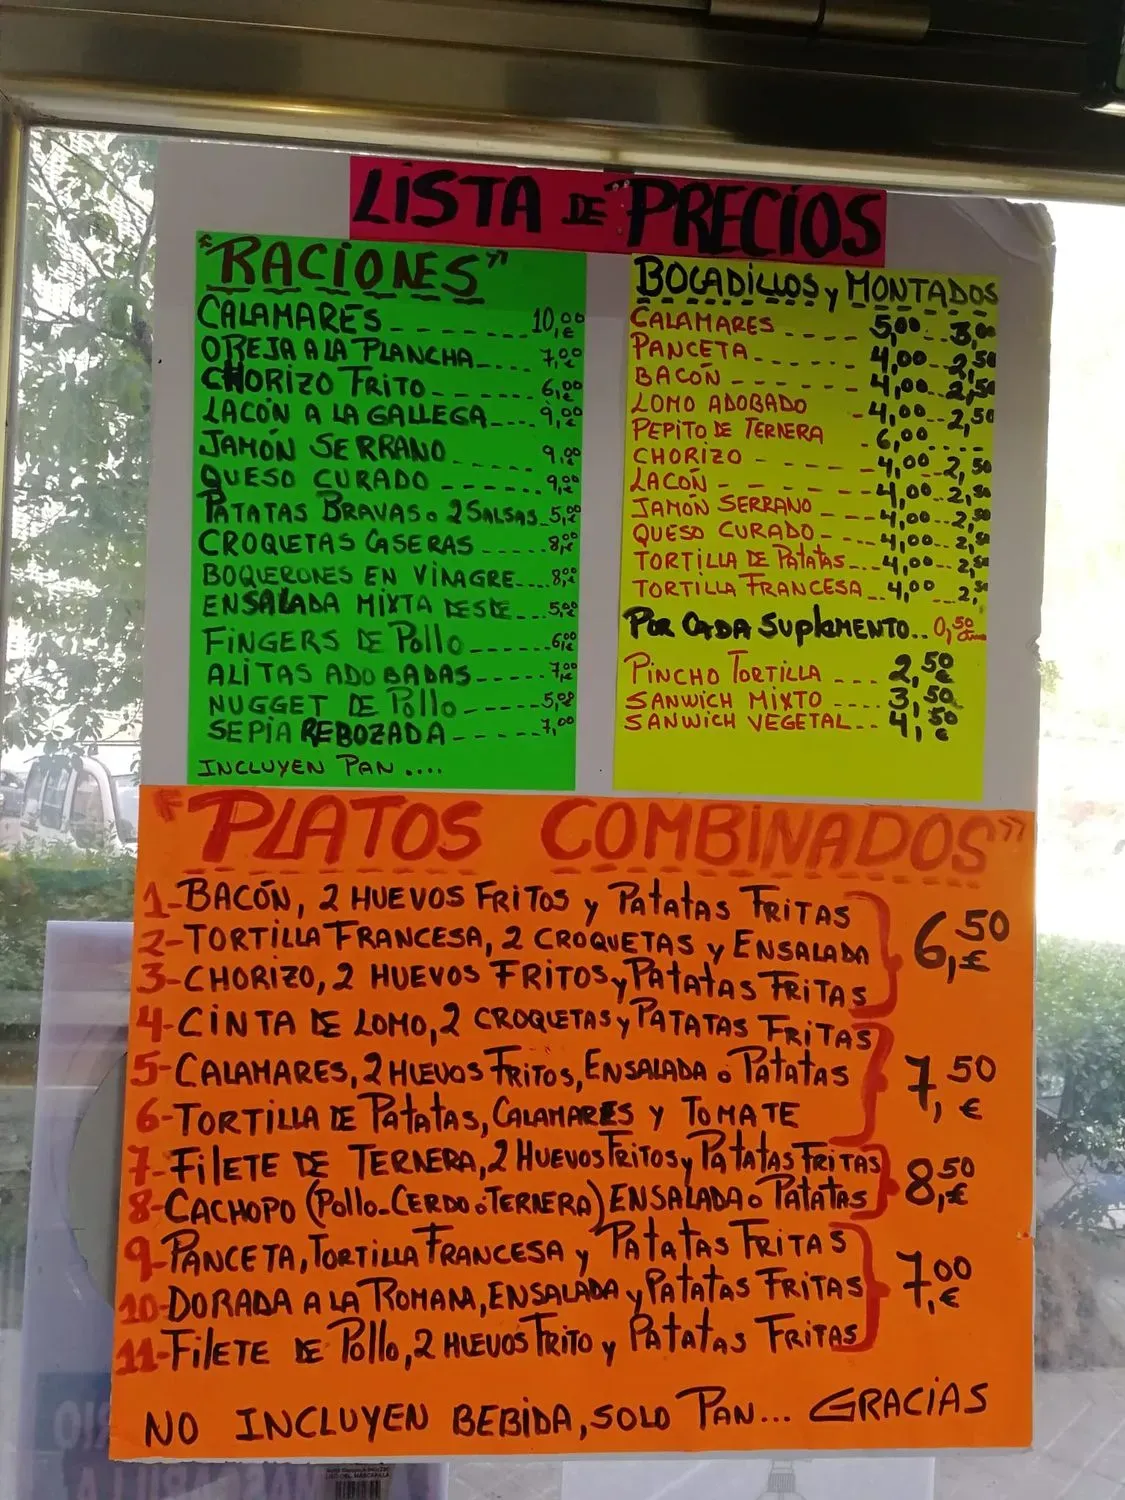 LISTA DE PRECIOS
"RACIONES"
CALAMARES 10,00 €
OREJA A LA PLANCHA 7,00 €
CHORIZO FRITO 6,00 €
LACÓN A LA GALLEGA 9,00 €
JAMÓN SERRANO 9,00 €
QUESO CURADO 9,00 €
PATATAS BRAVAS o 2 SALSAS 5,00 €
CROQUETAS CASERAS 8,00 €
BOQUERONES EN VINAGRE 8,00 €
ENSALADA MIXTA DESDE 5,00 €
FINGERS DE POLLO 6,00 €
ALITAS ADOBADAS 7,00 €
NUGGET DE POLLO 5,00 €
SEPIA REBOZADA 7,00
INCLUYEN PAN ....
BOCADILLOS y MONTADOS
CALAMARES 5,00 3,00
PANCETA 4,00 2,50
BACÓN 4,00 2,50
LOMO ADOBADO 4,00 2,50
PEPITO DE TERNERA 6,00
CHORIZO 4,00 2,50
LACÓN 4,00 2,50
JAMÓN SERRANO 4,00 2,50
QUESO CURADO 4,00 2,50
TORTILLA DE PATATAS 4,00 2,50
TORTILLA FRANCESA 4,00 2,50
POR CADA SUPLEMENTO.. 0,50
PINCHO TORTILLA 2,50 €
SANWICH MIXTO 3,50 €
SANWICH VEGETAL 4,50 €
"PLATOS COMBINADOS"
1-BACÓN, 2 HUEVOS FRITOS y PATATAS FRITAS
2-TORTILLA FRANCESA, 2 CROQUETAS y ENSALADA
3-CHORIZO, 2 HUEVOS FRITOS y PATATAS FRITAS
6,50 €
4-CINTA DE LOMO, 2 CROQUETAS y PATATAS FRITAS
5-CALAMARES, 2 HUEVOS FRITOS, ENSALADA o PATATAS
6-TORTILLA DE PATATAS, CALAMARES Y TOMATE
7,50 €
7-FILETE DE TERNERA, 2 HUEVOS FRITOS y PATATAS FRITAS
8-CACHOPO (POLLO-CERDO o TERNERA) ENSALADA o PATATAS
8,50 €
9-PANCETA, TORTILLA FRANCESA y PATATAS FRITAS
10-DORADA A LA ROMANA, ENSALADA y PATATAS FRITAS
11-FILETE DE POLLO, 2 HUEVOS FRITO y PATATAS FRITAS
7,00 €
NO INCLUYEN BEBIDA, SOLO PAN... GRACIAS